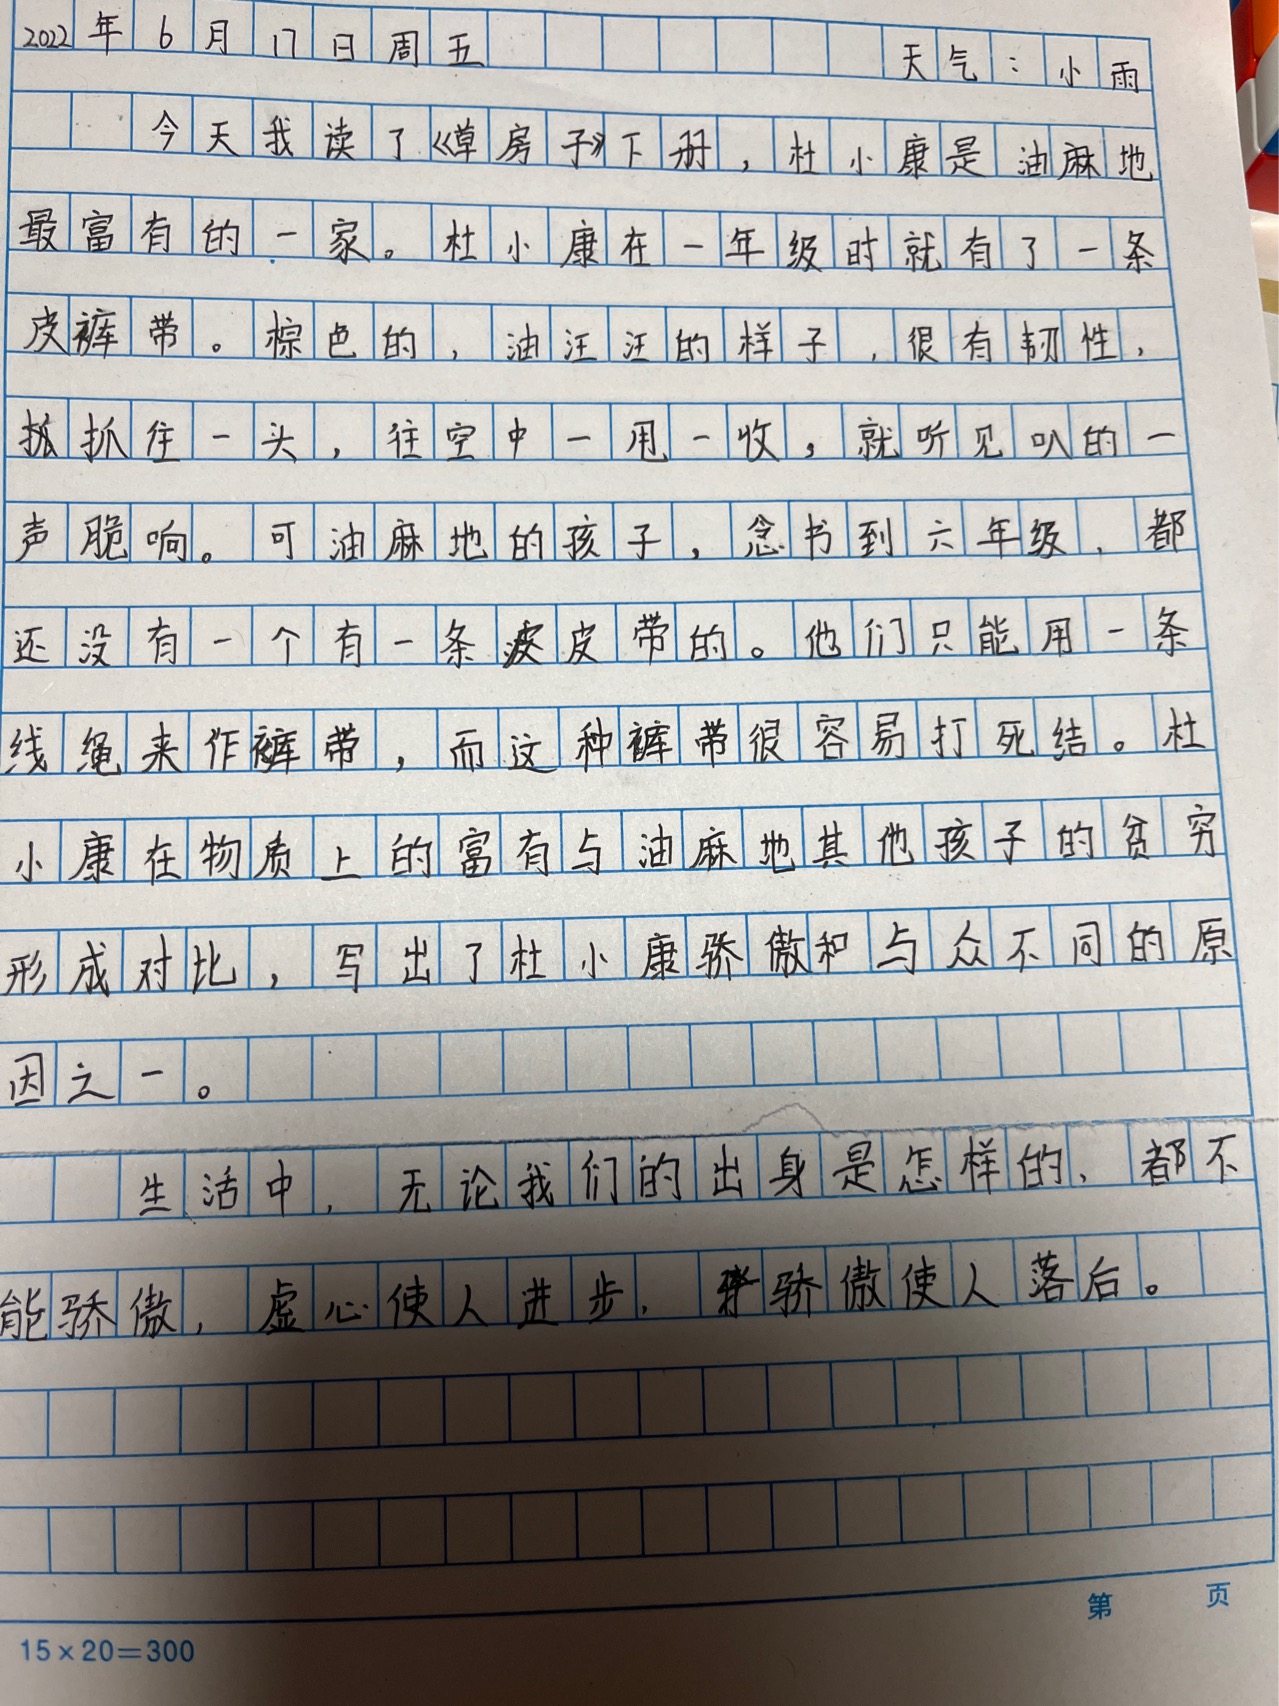 2022年6月17日周五 天气:小雨
今天我读了《草房子》下册，杜小康是油麻地
最富有的一家。杜小康在一年级时就有了一条
皮裤带。棕色的，油汪汪的样子，很有韧性，
抓住一头，往空中一甩一收，就听见叭的一
声脆响。可油麻地的孩子，念书到六年级，都
还没有一个有一条皮带的。他们只能用一条
线绳来作裤带，而这种裤带很容易打死结。杜
小康在物质上的富有与油麻地其他孩子的贫穷
形成对比，写出了杜小康骄傲和与众不同的原
因之一。
生活中，无论我们的出身是怎样的，都不
能骄傲，虚心使人进步，骄傲使人落后。
第 页
15×20=300